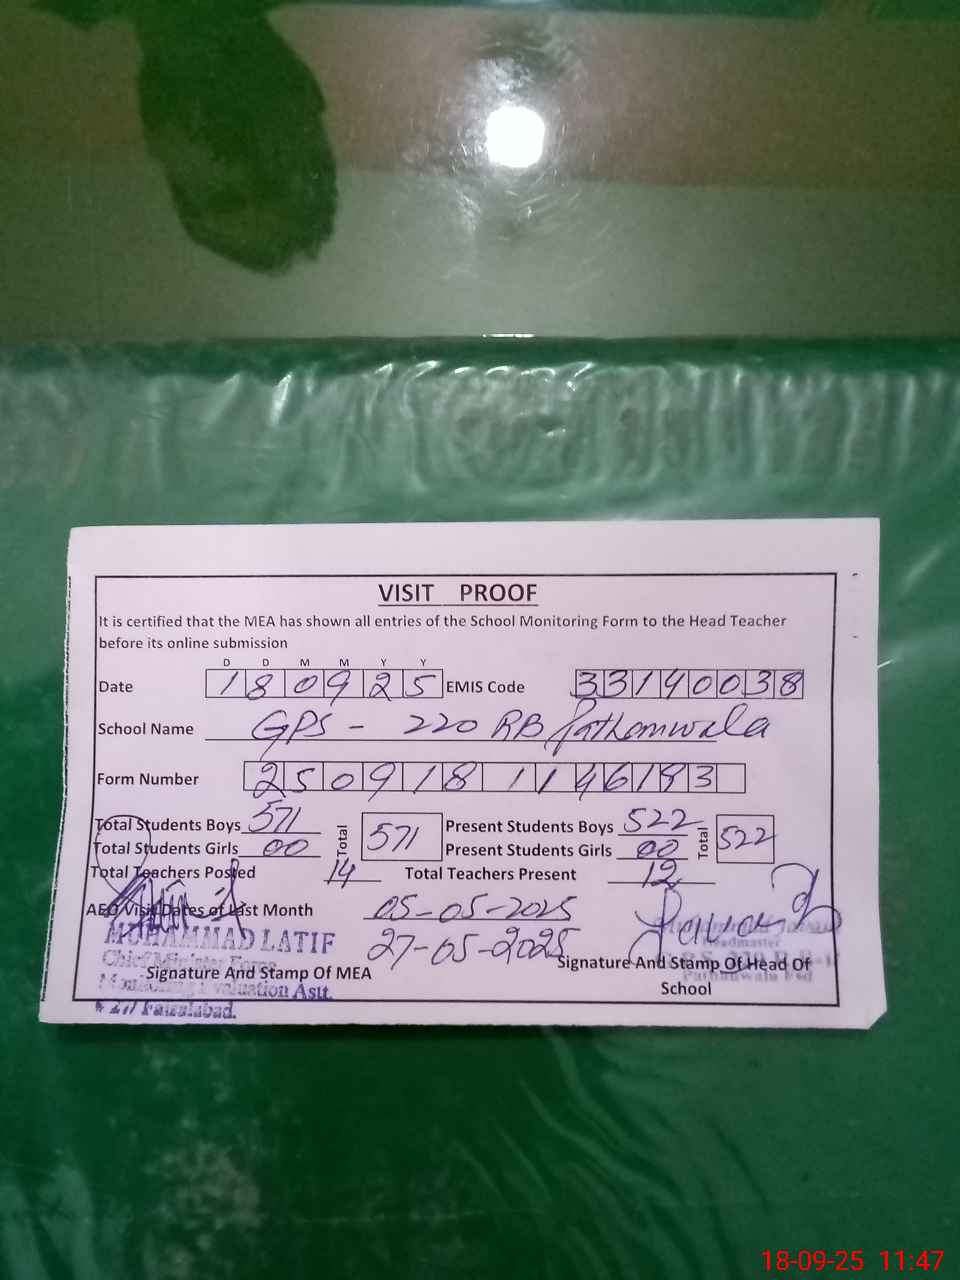 VISIT PROOF
It is certified that the MEA has shown all entries of the School Monitoring Form to the Head Teacher
before its online submission
D D M M Y Y
Date 180925 EMIS Code 33140038
School Name GPS - 220 RB Pathanwala
Form Number 250918 1146193
Total Students Boys 571 Total 571 Present Students Boys 522 Total 522
Total Students Girls 00 Present Students Girls 00
Total Teachers Posted 14 Total Teachers Present 12
AEO Visit Dates of Last Month 05-05-2025
27-05-2025
MUHAMMAD LATIF
Chief Minister Force
Signature And Stamp Of MEA
Monitoring Evaluation Astt.
# 27/ Faisalabad.
Headmaster
Signature And Stamp Of Head Of
School
Pathanwala Fsd
18-09-25 11:47